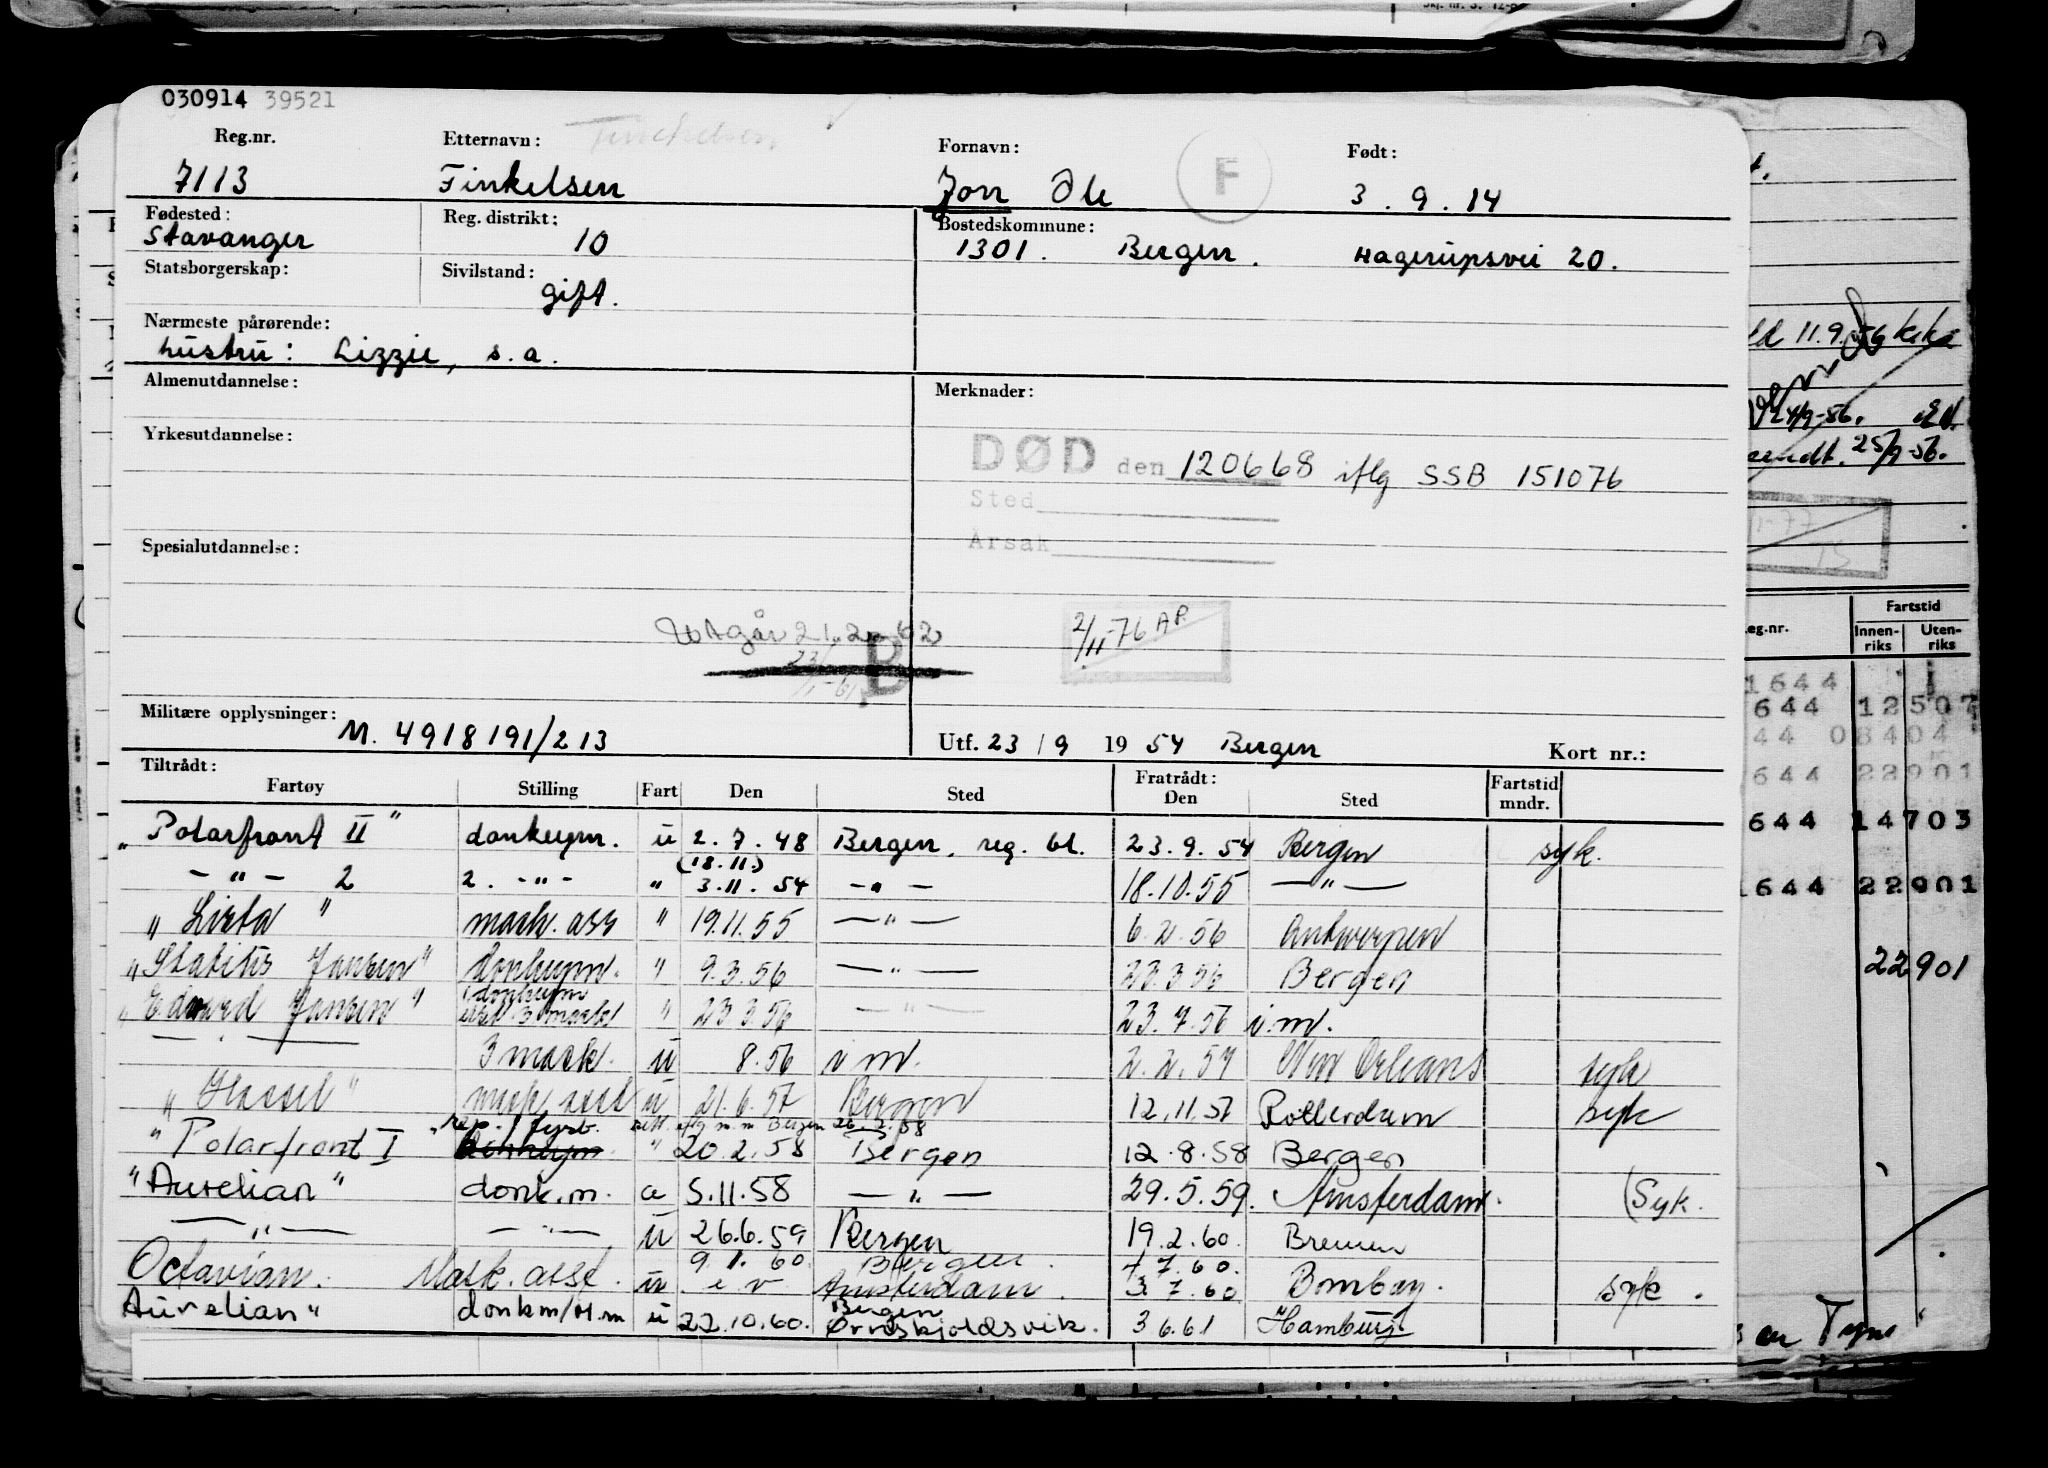 030914 39521
Reg.nr. Etternavn: Fornavn: Født:
7113 Finkelsen Jon Ole F 3.9.14
Fødested: Reg. distrikt: Bostedskommune:
Stavanger 10 1301. Bergen. Hagerupsvei 20.
Statsborgerskap: Sivilstand:
gift.
Nærmeste pårørende:
hustru: Lizzie, s.a.
Almenutdannelse: Merknader:
Yrkesutdannelse:
DØD den 120668 iflg SSB 151076
Sted
Årsak
Spesialutdannelse:
Utgår 21.2.62
B
2/11-76 AP
Militære opplysninger: M. 4918191/213
Utf. 23/9 1954 Bergen Kort nr.:
Tiltrådt: Fratrådt: Fartstid
Fartøy Stilling Fart Den Sted Den Sted mndr.
"Polarfront II" donkeym. u 2.7.48 Bergen, reg. bl. 23.9.54 Bergen syk.
(18.11.)
-"- 2 2. -"- " 3.11.54 -"- 18.10.55 -"-
"Lista" mask. ass " 19.11.55 -"- 6.2.56 Antwerpen
Jansen" donkeym. " 9.3.56 -"- 23.3.56 Bergen
"Edward Jansen" donkeym " 23 3 56 -"- 23.7.56 i.m.
3 mask. u 8.56 i m. 2.2.57 New Orleans syk
mask. asst u 21.6.57 Bergen 12.11.57 Rotterdam syk
"Polarfront I rep./fyrb. " 20.2.58 Bergen 12.8.58 Bergen
"Aurelian" donk.m. a 5.11.58 -"- 29.5.59. Amsterdam. (Syk.
-"- -"- u 26.6.59 Bergen 19.2.60. Bremen
9.1.60 Bergen. 7.60.
Octavian. Mask. asst. u Amsterdam. 3.7.60 Bombay. syk.
Bergen
Aurelian" donkm/M.m u 22.10.60. Ørnskjoldsvik. 3 6.61 Hamburg
11.9.56
24/9-56.
sendt. 25/9-56.
eg.nr. Fartstid
Innen-riks Uten-riks
1644
644 12507
44 08404
644 22901
644 14703
1644 22901
22901